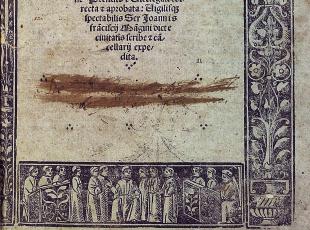 recta ⁊ aprobata: Vigilijsq̃
spectabilis Ser Joannis
frãcisci Mãgini dicte
ciuitatis scribe ⁊ cã
cellarij expe
dita.